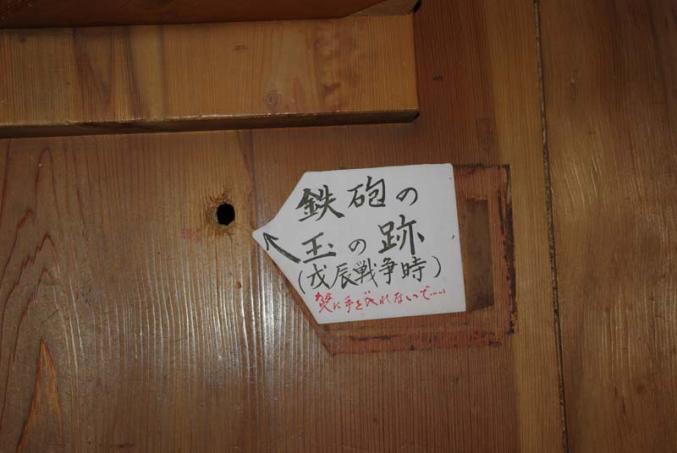 鉄砲の
玉の跡
(戊辰戦争時)
に手を入れないで.....